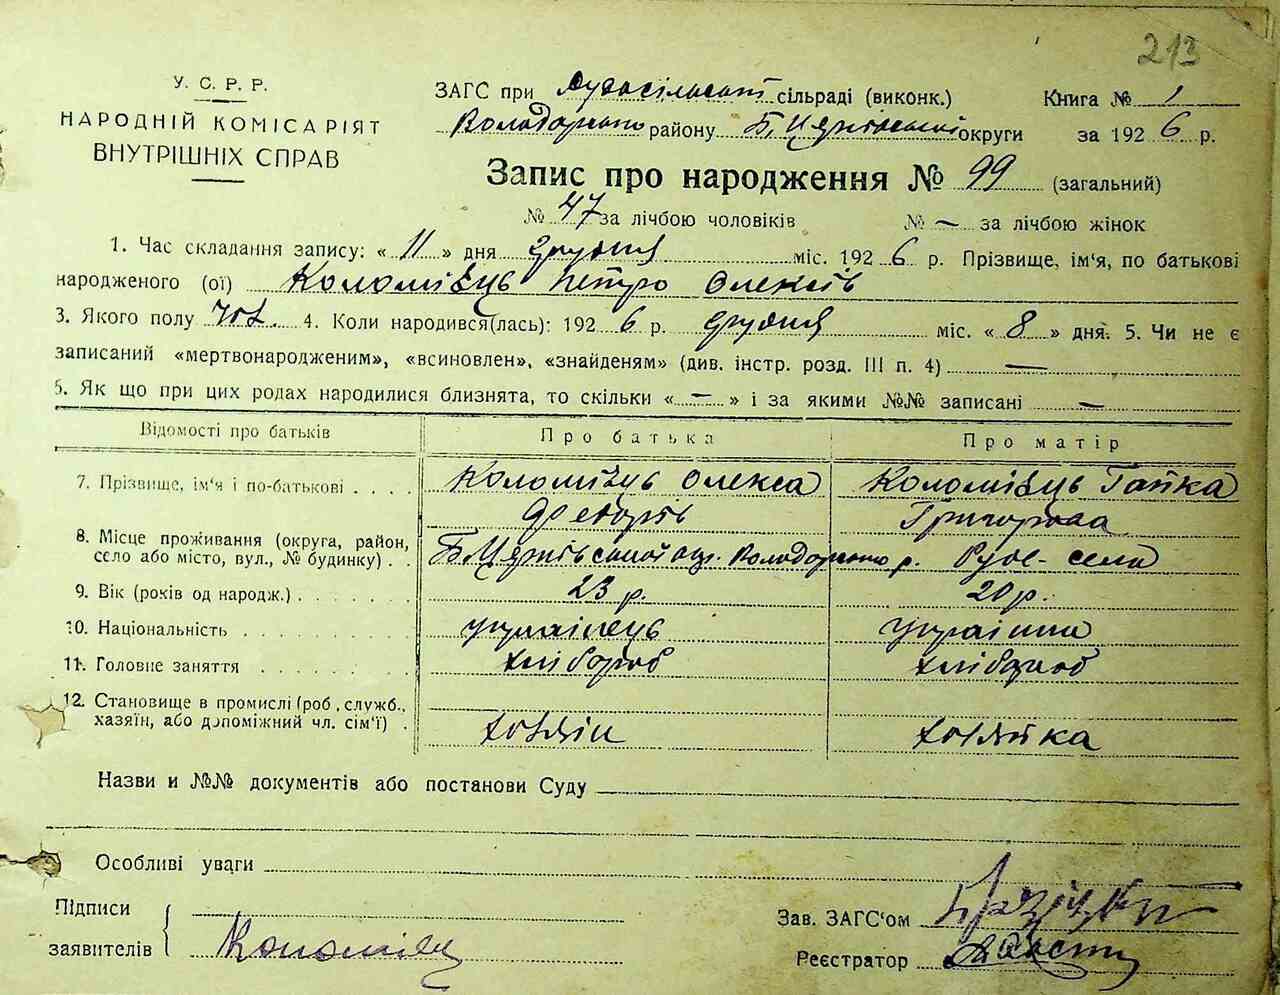 213
У. С. Р. Р.
НАРОДНІЙ КОМІСАРІЯТ
ВНУТРІШНІХ СПРАВ
ЗАГС при сільраді (виконк.) Книга № 1
Володарського району Б. Церківської округи за 1926 р.
Запис про народження № 99 (загальний)
№ 47 за лічбою чоловіків № — за лічбою жінок
1. Час складання запису: « 11 » дня грудня міс. 1926 р. Прізвище, ім'я, по батькові
народженого (ої) Коломієць Петро Олексів
3. Якого полу чол. 4. Коли народився(лась): 1926 р. грудня міс. « 8 » дня. 5. Чи не є
записаний «мертвонародженим», «всиновлен», «знайденям» (див. інстр. розд. III п. 4) —
5. Як що при цих родах народилися близнята, то скільки « — » і за якими №№ записані —
Відомості про батьків Про батька Про матір
7. Прізвище, ім'я і по-батькові . . . . Коломієць Олекса Коломієць Гапка
Григорова
8. Місце проживання (округа, район,
село або місто, вул., № будинку) . . Б. Церківської окр. Володарського р. Руде-село
9. Вік (років од народж.) . . . . . . 23 р. 20 р.
10. Національність . . . . . . . . . українець українка
11. Головне заняття . . . . . . . хлібороб хлібороб
12. Становище в промислі (роб., служб.,
хазяїн, або допоміжний чл. сім'ї) . хазяїн хазяйка
Назви и №№ документів або постанови Суду
Особливі уваги
Підписи
заявителів Коломієц
Зав. ЗАГС'ом
Реєстратор